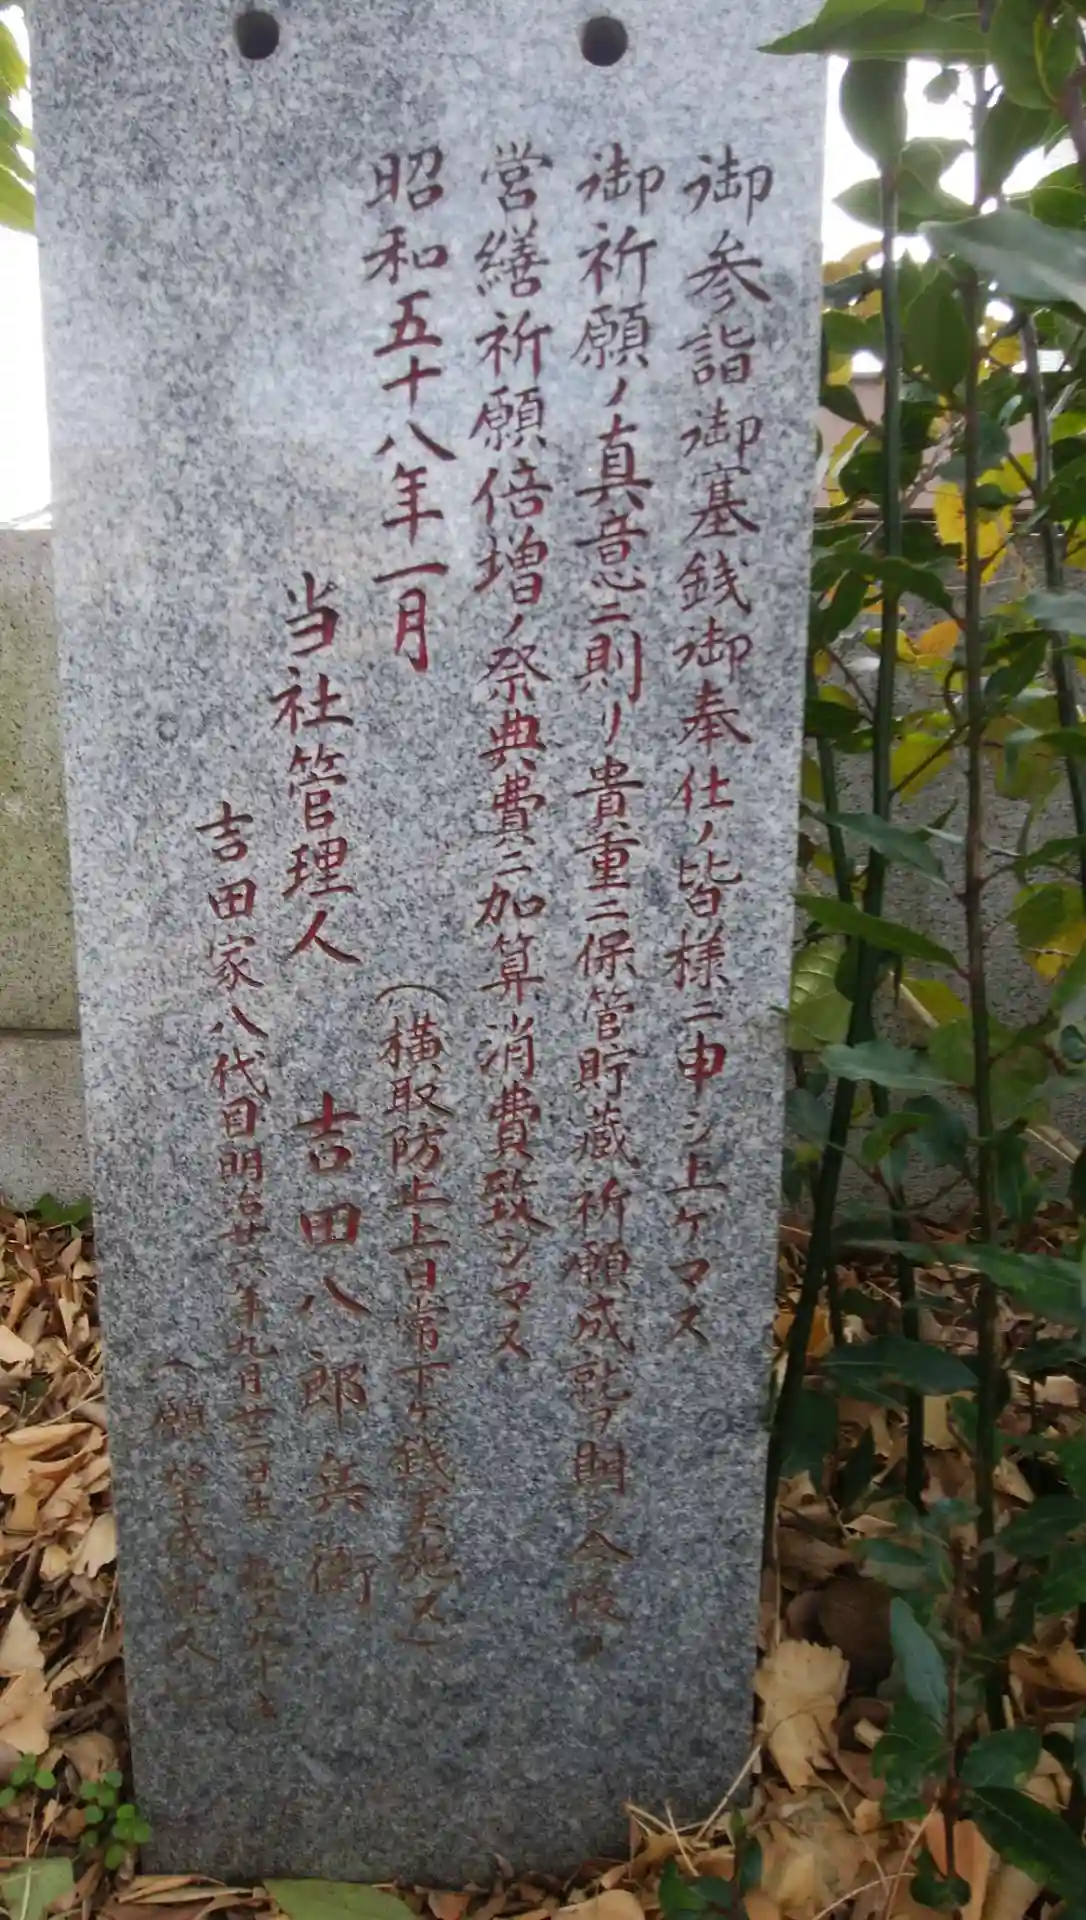 御参詣御塞銭御奉仕ノ皆様ニ申シ上ゲマス
御祈願ノ真意ニ則リ貴重ニ保管貯蔵祈願成就ヲ期シ今後ノ
営繕祈願倍増ノ祭典費ニ加算消費致シマス
昭和五十八年一月
(横取防止上日常下ゲ銭実施ス)
当社管理人 吉田八郎兵衛
吉田家八代目明治廿六年九月廿二日生